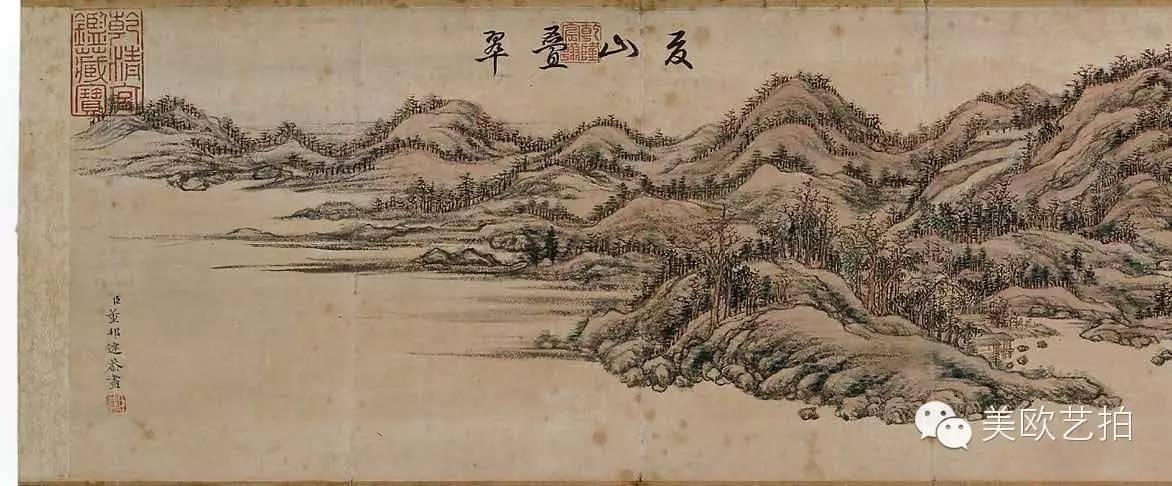 夏山疊翠
乾隆宸翰
乾清宮鑑藏寶
臣董邦達恭畫
美欧艺拍